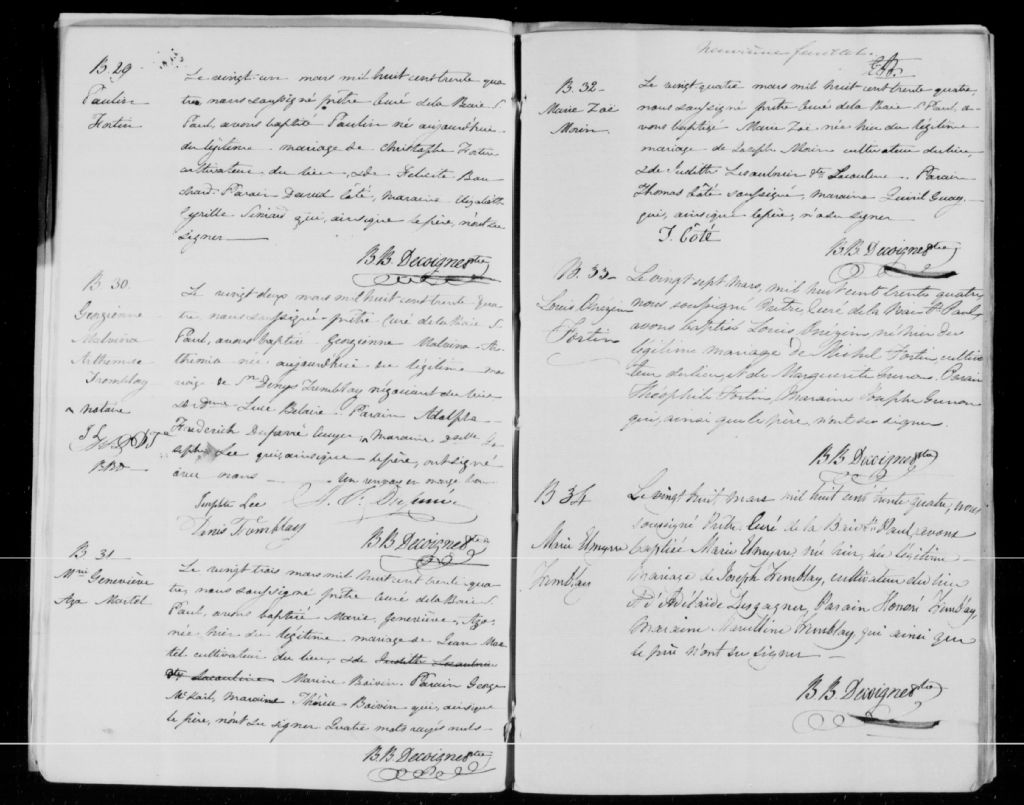 B. 29
Paulin
Fortin
Le vingt-un mars mil huit cent trente qua-
tre nous soussigné prêtre curé de la Baie S.
Paul, avons baptisé Paulin né aujourd'hui
du légitime mariage de Christophe Fortin
cultivateur du lieu, & de Feliceté Bou
chard. Parain David Côté, maraine Elizabeth
Cyrille Simard qui, ainsique le père, n'ont su
signer
B. B. Decoigne ptre
B. 30.
Georgienne
Malvina
Arthemise
Tremblay
notaire
B B D
Le vingt deux mars mil huit cent trente qua-
tre, nous soussigné prêtre curé de la Baie S.
Paul, avons baptisé Georgienne Malvina Ar-
themise née aujourd'hui du légitime ma
riage de Sr. Denys Tremblay négociant du lieu
& de dme Luce Parain Adolphe
Frederich Dufarré Maraine dselle Jo
sephte Lee qui, ainsique le père, ont signé
avec nous Un renvoi en marge bon
Josephte Lee
Denis Tremblay
B. B. Decoigne ptre
B 31
Mrie Geneviève
Aza Martel
Le vingt trois mars mil huit cent trente qua-
tre, nous soussigné prêtre curé de la Baie S.
Paul, avons baptisé Marie, Geneviève, Aza
née hier du légitime mariage de Jean Mar
tel cultivateur du lieu, & de Judith Lesaulnier
dte Lacouline Marine Boivin. Parain George
McKail, maraine Thérèse Boivin qui, ainsique
le père, n'ont su signer Quatre mots rayés nuls
B. B. Decoigne ptre
neuvième feuillet
B. 32
Marie Zoé
Morin
Le vingt quatre mars mil huit cent trente quatre,
nous soussigné prêtre curé de la Baie S. Paul, a-
vons baptisé Marie Zoé, née hier du légitime
mariage de Joseph Morin cultivateur du lieu,
& de Judith Lesaulnier dte Lacouline. Parain
Thomas Côté soussigné, maraine Guay
qui, ainsique le père, n'a su signer
T. Côté
B. B. Decoigne ptre
B. 33
Louis Onézim
Fortin
Le vingt sept mars, mil huit cent trente quatre
nous soussigné Prêtre Curé de la Baie St. Paul,
avons baptisé Louis Onézim, né hier du
légitime mariage de Michel Fortin, cultiva
teur du lieu, & de Marguerite Grenon. Parain
Théophile Fortin, Maraine Josephe Grenon
qui, ainsi que le père, n'ont su signer
B. B. Decoigne ptre
B 34
Marie Elmyre
Tremblay
Le vingt huit mars mil huit cent trente quatre, nous
soussigné Prêtre Curé de la Baie St. Paul, avons
baptisée Marie Elmyre, née hier, du légitime
mariage de Joseph Tremblay, cultivateur du lieu
& d'Adélaïde Lesgagner, Parain Honoré Tremblay,
Maraine Marcelline Tremblay, qui ainsi que
le père n'ont su signer
B. B. Decoigne ptre